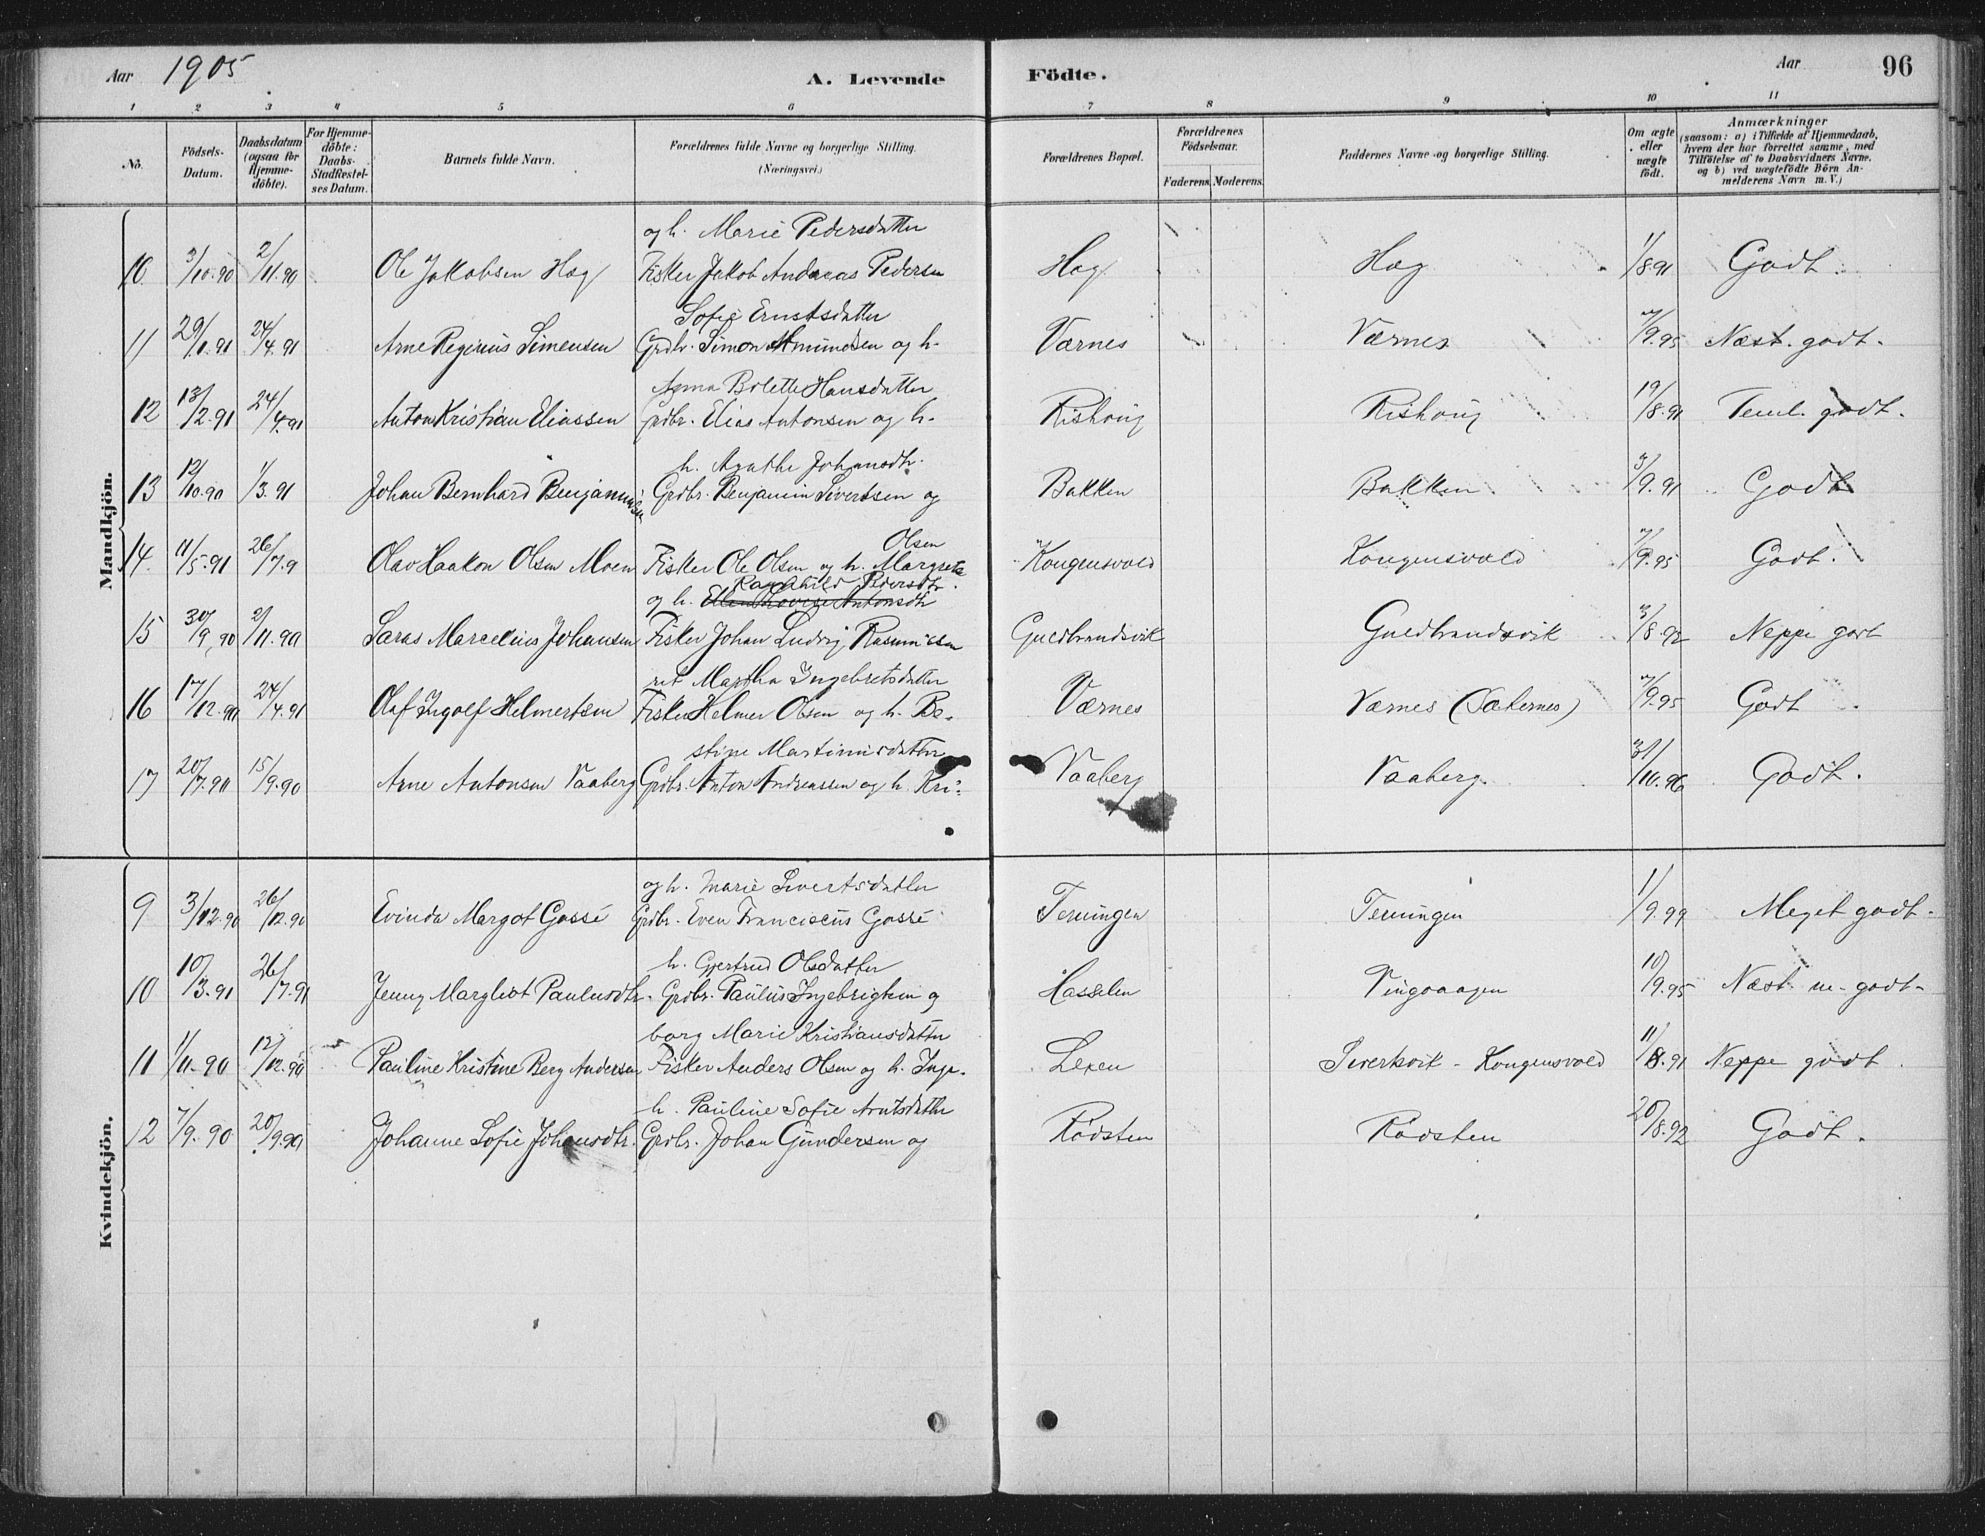 Aar 1905 A. Levende Födte. Aar 96
1 2 3 4 5 6 7 8 9 10 11
No. Födsels-Datum. Daabsdatum (ogsaa for Hjemme-döbte). For Hjemme-döbte: Daabs-Stadfæstel-ses Datum. Barnets fulde Navn. Forældrenes fulde Navne og borgerlige Stilling. (Næringsvei.) Forældrenes Bopæl. Forældrenes Födselsaar. Faderens. Moderens. Faddernes Navne og borgerlige Stilling. Om ægte eller uægte födt. Anmærkninger (saasom: a) i Tilfælde af Hjemmedaab, hvem der har forrettet samme, med Tilföielse af to Daabsvidners Navne, og b) ved uægtefödte Börn An-melderens Navn m. V.)
Mandkjön.
og h. Marie Pedersdatter
10 3/10.90 2/11.90 Ole Jakobsen Hag Fisker Jakob Andreas Pedersen Hag Hag 1/8.91 Godt.
Sofie Ernstsdatter
11 29/1.91 24/4.91 Arne Reginius Simensen Grdbr. Simon Amundsen og h. Værnes Værnes 7/9.95 Næst. godt.
Anna Bolette Hansdatter
12 13/2.91 24/4.91 Anton Kristian Eliassen Grdbr. Elias Antonsen og h. Rishaug Rishaug 19/8.91 Teml. godt.
h. Agathe Johansdtr.
13 12/10.90 1/3.91 Johan Bernhard Benjaminsen Grdbr. Benjamin Sivertsen og Bakken Bakken 3/9.91 Godt
Olsen
14 11/5.91 26/7.9 Olav Haakon Olsen Moen Fisker Ole Olsen og h. Margrete Kongensvold Kongensvold 7/9.95 Godt.
Ragnhild Pedersdtr.
og h. Ellen Lovise Antonsdtr
15 30/9.90 2/11.90 Saras Marcelius Johansen Fisker Johan Ludvig Rasmussen Guldbrandsvik Guldbrandsvik 3/8.92 Neppe godt
ret Martha Ingebretsdatter
16 17/12.90 24/4.91 Olaf Ingolf Helmertsen Fisker Helmer Olsen og h. Be- Værnes Værnes (Sæternes) 7/9.95 Godt.
stine Martinusdatter
17 20/7.90 15/9.90 Arne Antonsen Vaaberg Grdbr. Anton Andreassen og h. Kri- Vaaberg Vaaberg 31/10.96 Godt.
Kvindekjön.
og h. Marie Sivertsdatter
9 3/12.90 26/12.90 Evinda Margot Gossé Grdbr. Even Franciscus Gossé Terningen Terningen 1/9.99 Meget godt.
h. Gjertrud Olsdatter
10 10/3.91 26/7.91 Jenny Margliot Paulusdtr. Grdbr. Paulus Ingebrigtsen og Hasselen Vingvaagen 10/9.95 Næst m. godt.
borg Marie Kristiansdatter
11 1/11.90 12/12.90 Pauline Kristine Berg Andersen Fisker Anders Olsen og h. Inge- Lexen Siverkvik - Kongensvold 11/8.91 Neppe godt.
h. Pauline Sofie Arntsdatter
12 7/9.90 20/9.90 Johanne Sofie Johansdtr. Grdbr. Johan Gundersen og Rødsten Rødsten 20/8.92 Godt.